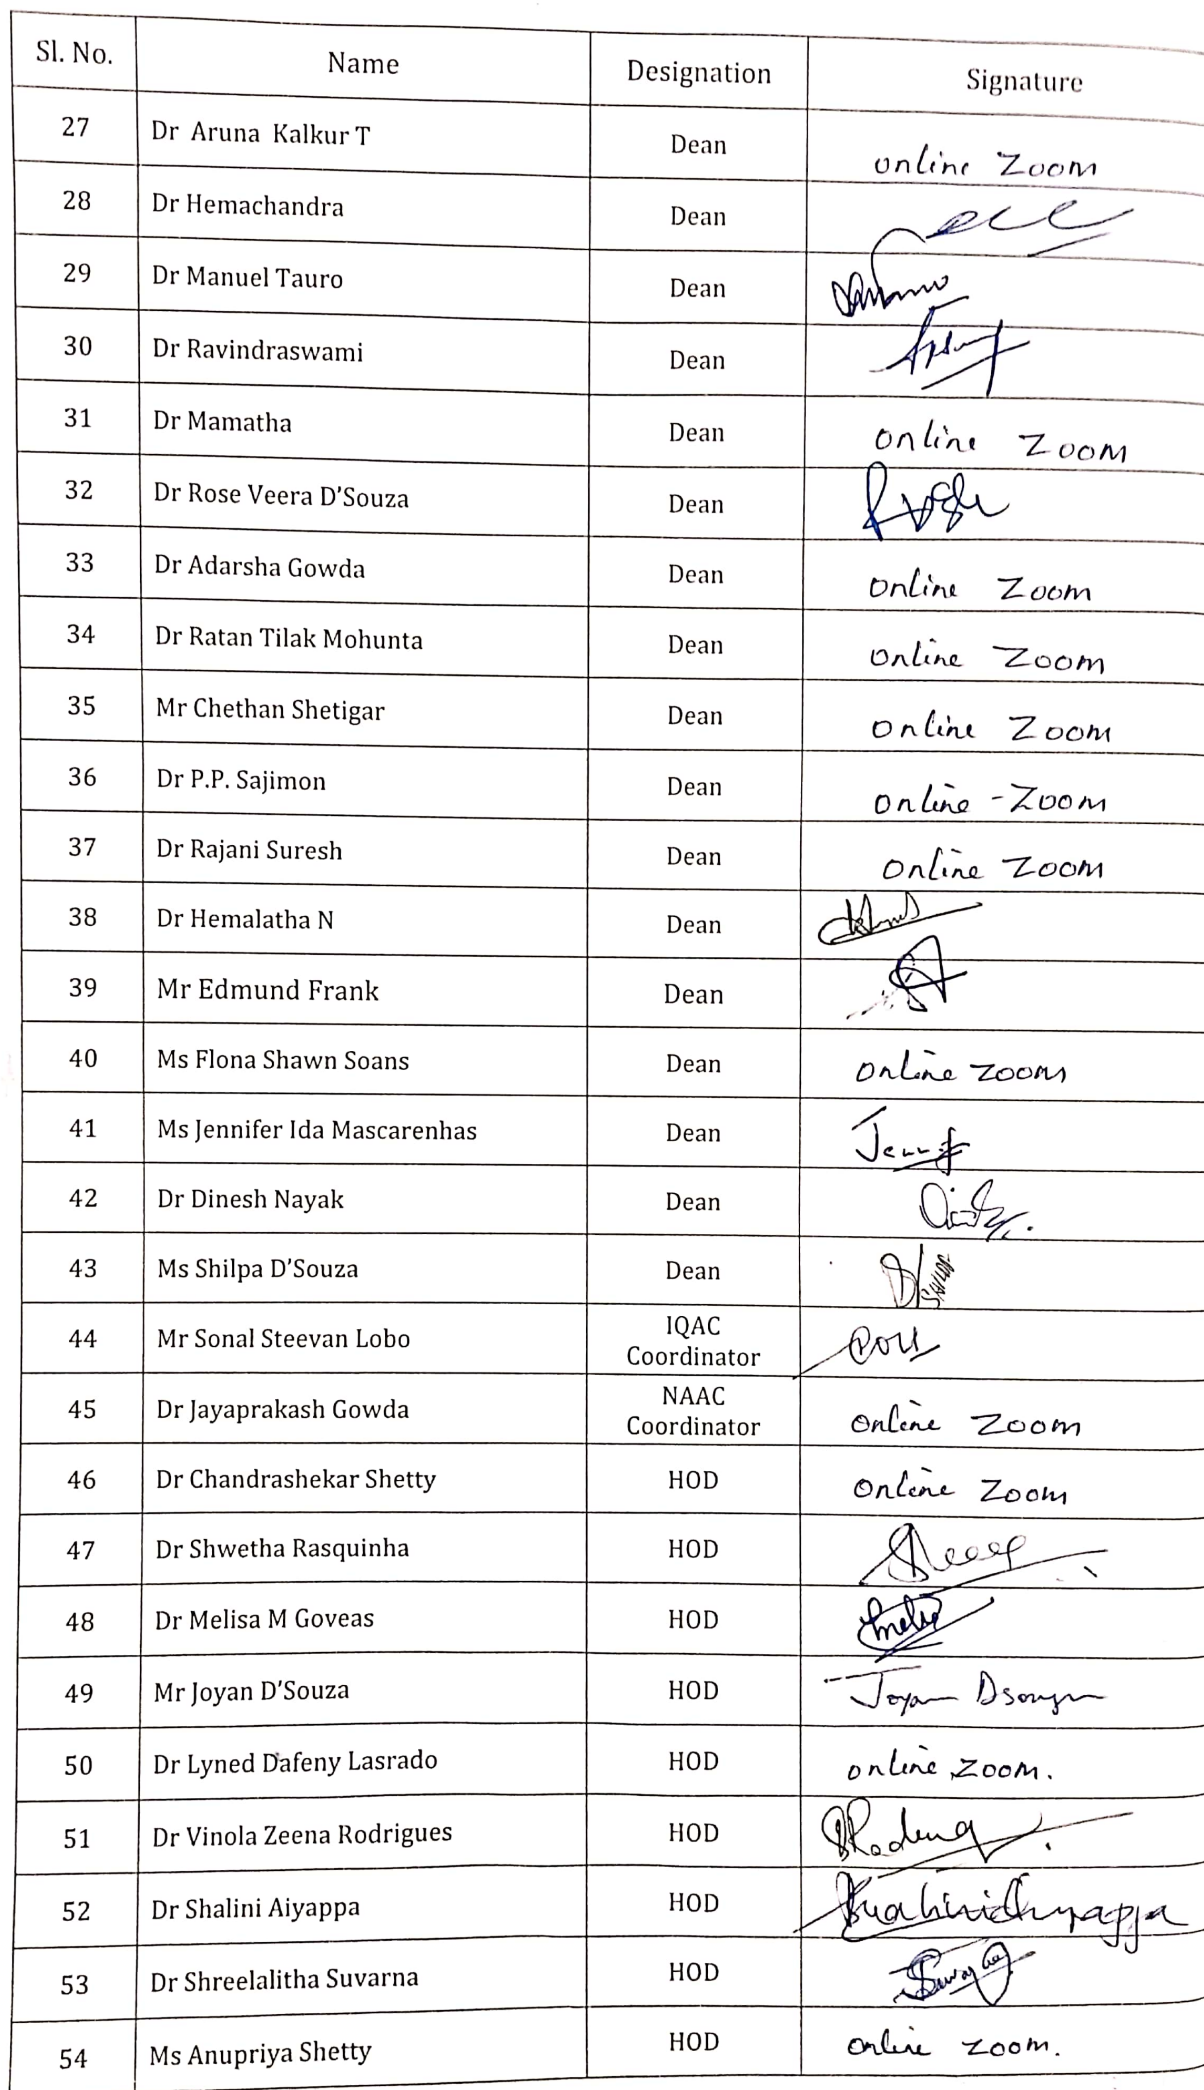 Sl. No. Name Designation Signature
27 Dr Aruna Kalkur T Dean online Zoom
28 Dr Hemachandra Dean
29 Dr Manuel Tauro Dean
30 Dr Ravindraswami Dean
31 Dr Mamatha Dean online Zoom
32 Dr Rose Veera D'Souza Dean
33 Dr Adarsha Gowda Dean online Zoom
34 Dr Ratan Tilak Mohunta Dean online Zoom
35 Mr Chethan Shetigar Dean online Zoom
36 Dr P.P. Sajimon Dean online - Zoom
37 Dr Rajani Suresh Dean online Zoom
38 Dr Hemalatha N Dean
39 Mr Edmund Frank Dean
40 Ms Flona Shawn Soans Dean online zoom
41 Ms Jennifer Ida Mascarenhas Dean
42 Dr Dinesh Nayak Dean
43 Ms Shilpa D'Souza Dean
44 Mr Sonal Steevan Lobo IQAC
Coordinator
45 Dr Jayaprakash Gowda NAAC
Coordinator online Zoom
46 Dr Chandrashekar Shetty HOD online Zoom
47 Dr Shwetha Rasquinha HOD
48 Dr Melisa M Goveas HOD
49 Mr Joyan D'Souza HOD
50 Dr Lyned Dafeny Lasrado HOD online zoom.
51 Dr Vinola Zeena Rodrigues HOD
52 Dr Shalini Aiyappa HOD
53 Dr Shreelalitha Suvarna HOD
54 Ms Anupriya Shetty HOD online zoom.